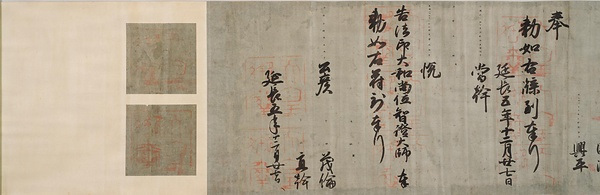 興平
奉
勅如右牒到奉行
延長五年十二月廿七日
當幹
悦
告法印大和尚位智證大師奉
勅如右符到奉行
茂倫
延長五年十二月廿七日